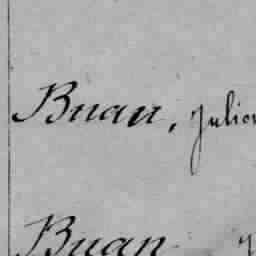 Buan, Julien
Buan